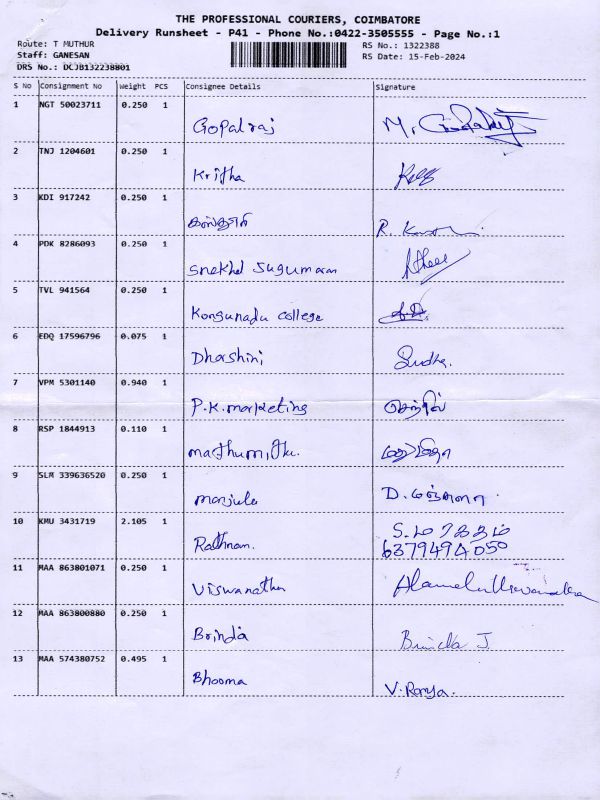 THE PROFESSIONAL COURIERS, COIMBATORE
Delivery Runsheet - P41 - Phone No.:0422-3505555 - Page No.:1
Route: T MUTHUR RS No.: 1322388
Staff: GANESAN RS Date: 15-Feb-2024
DRS No.: DCJB132238801
S No Consignment No Weight PCS Consignee Details Signature
1 NGT 50023711 0.250 1
Gopalraj M.
2 TNJ 1204601 0.250 1
Kritha
3 KDI 917242 0.250 1
கஸ்தூரி R.
4 PDK 8286093 0.250 1
Snekha Sugumaran
5 TVL 941564 0.250 1
Kongunadu college
6 EDQ 17596796 0.075 1
Dharshini Sudha.
7 VPM 5301140 0.940 1
P.K.marketing செந்தில்
8 RSP 1844913 0.110 1
மதுமிதா
9 SLM 339636520 0.250 1
manjula D. மஞ்சுளா
10 KMU 3431719 2.105 1
Rathnam. S.
6379494050
11 MAA 863801071 0.250 1
Viswanathan Alamelu Viswanathan
12 MAA 863800880 0.250 1
Brinda Brinda J
13 MAA 574380752 0.495 1
Bhooma V. Ramya.